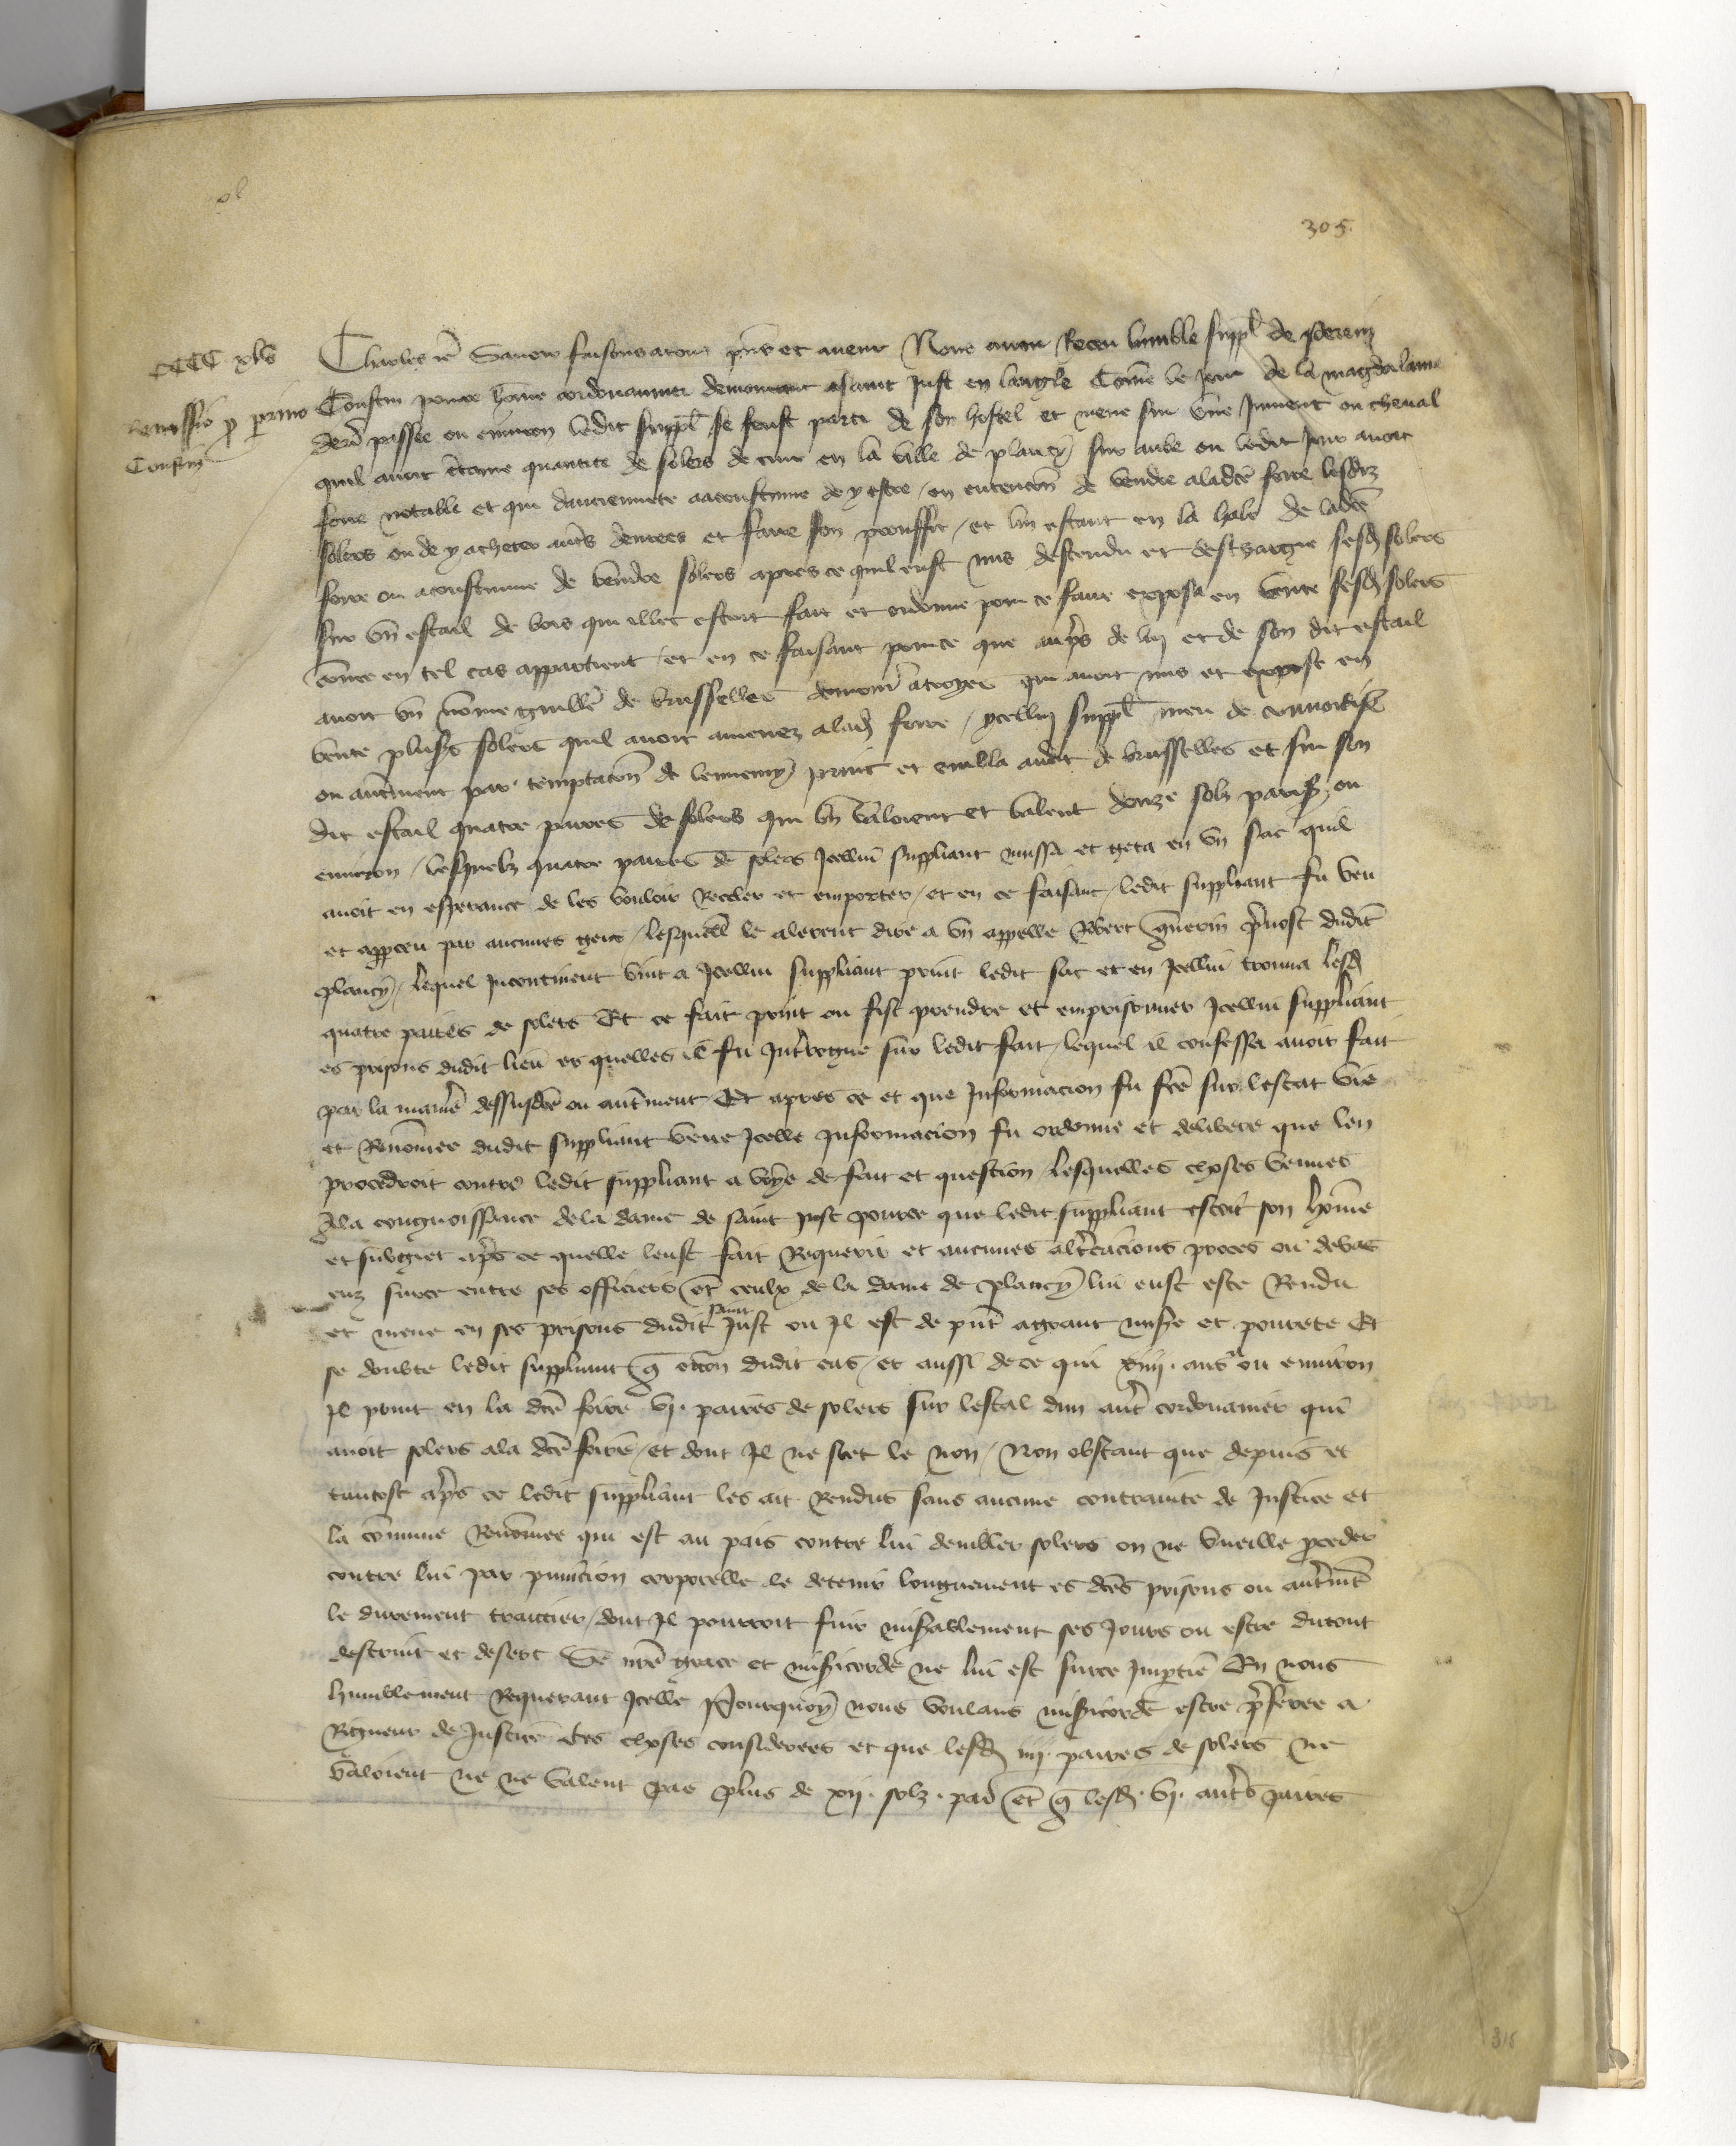 305.
CCCC xlv
Remissio pro perino
Cousin
Charles etc Savoir faisons a touz presens et avenir Nous avoir Receu lumble suppl de perein
Cousin povre home cordouannier demourant a saint Just en langle Come le jour de la magdalaine
derr passee ou environ ledit suppl se feust parti de son hostel et mene sur une Jument ou cheval
quil avoit certaine quantite de solers de cuir en la ville de plancy sur aube ou ledit jour avoit
foire notable et qui danciennete a acoustume de y estre / en entencon de vendre a ladce foire lesdiz
solers ou de y acheter autres denrees et faire son prouffit / et lui estant en la hale de ladce
foire ou acoustume de vendre solers apres ce quil eust mis descendu et deschargie sesd solers
sur un estail de bois qui illec estoit fait et ordonne pour ce faire exposa en vente sesd solers
come en tel cas appartient / et en ce faisant pource que aupres de lui et de son dit estail
avoit un nomme guille de brusselles demour a troyes qui avoit mis et expose en
vente plusrs solers quil avoit amenez a lad foire / ycellui suppl meu de convoitise
ou autrement par temptacon de lennemy print et embla audit de brusselles et sur son
dit estail quatre paires de solers qui bn valoient et valent douze solz paris ou
environ / lesquelz quatre paires de solers Icellui suppliant mussa et geta en un sac quil
avoit en esperance de les vouloir Receler et emporter / et en ce faisant / ledit suppliant fu veu
et apperceu par aucunes gens / lesquelz le alerent dire a un appelle Robert Guerin prevost dudit
plancy / lequel Incontinent vint a Icellui suppliant print ledit sac et en Icellui trouva lesd
quatre paires de solers Et ce fait print ou fist prendre et emprisonner Icellui suppliant
es prisons dudit lieu es quelles il fu Interrogue sur ledit fait / lequel il confessa avoir fait
par la maniere dessusdce ou autrement Et apres ce et que Informacion fu fce sur lestat vie
et Renomee dudit suppliant veue Icelle Informacion fu ordonne et delibere que len
procedroit contre ledit suppliant a voye de fait et question / lesquelles choses venues
A la congnoissance de la dame de saint Just pource que ledit suppliant estoit son home
et subgiet apres ce quelle leust fait Requerir et aucunes altercacions proces ou debas
enz surce entre ses officiers et ceulx de la dame de plancy lui eust este Rendu
et mene en ses prisons dudit saint Just ou Il est de pnt a grant misere et povrete Et
se doubte ledit suppliant que occon dudit cas / et aussi de ce qui xiiii. ans a ou environ
Il print en la dce foire vj. paires de solers sur lestal dun autre cordouanier qui
avoit solers a la dce foire / et dont Il ne scet le non / Non obstant que depuis et
tantost apres ce ledit suppliant les ait Rendus sans aucune contrainte de Justice et
la comune Renomee qui est au pais contre lui dembler solers on ne vueille proceder
contre lui par punicion corporelle le detenir longuement es dces prisons ou autrement
le durement traictier / dont Il pourroit finir miserablement ses Jours ou estre du tout
destruit et desert Se nre grace et misericorde ne lui est surce Impartie En nous
humblement Requerant Icelle Pourquoy nous voulans misericorde estre preferee a
Rigueur de Justice Les choses considerees et que lesd iiij. paires de solers ne
valoient ne ne valent pas plus de xij. solz. par et que lesd. vj. autres paires
315